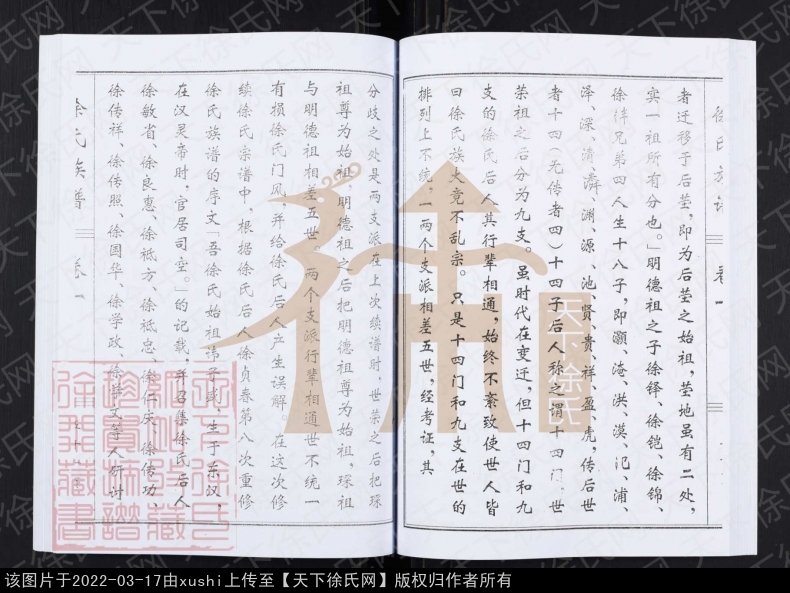 徐氏族谱
卷一
者迁移于后茔，即为后茔之始祖，茔地虽有二处，
实一祖所有分也。」明德祖之子徐铎、徐铠、徐锦、
徐锌兄弟四人生十八子，即灏、淹、洪、漠、汜、浦、
泽、深、清、潾、渊、源、池、贤、贵、祥、盈、虎，传后世
者十四（无传者四）十四子后人称之谓十四门，世
荣祖之后分为九支。虽时代在变迁，但十四门和九
支的徐氏后人其行辈相通，始终不紊致使世人皆
曰徐氏族大竟不乱宗。只是十四门和九支在世的
排列上不统，一两个支派相差五世，经考证，其
分歧之处是两支派在上次续谱时，世荣之后把琛
祖尊为始祖，明德祖之后把明德尊为始祖，琛祖
与明德祖相差五世。两个支派行辈相通世不统一
有损徐氏门风，并给徐氏后人产生误解，在这次修
续徐氏宗谱中，根据徐氏后人徐贞春第八次重修
徐氏族谱的序文「吾徐氏始祖讳子盛，生于东汉，
在汉灵帝时，官居司空。」的记载，并召集徐氏后人
徐敏省、徐良惠、徐祗方、徐祗忠、徐仁庆、徐传功、
徐传祥、徐传照、徐国华、徐学政、徐学文等人研讨
徐氏族谱
卷一
天下徐氏
天下徐氏网
该图片于2022-03-17由xushi上传至【天下徐氏网】版权归作者所有